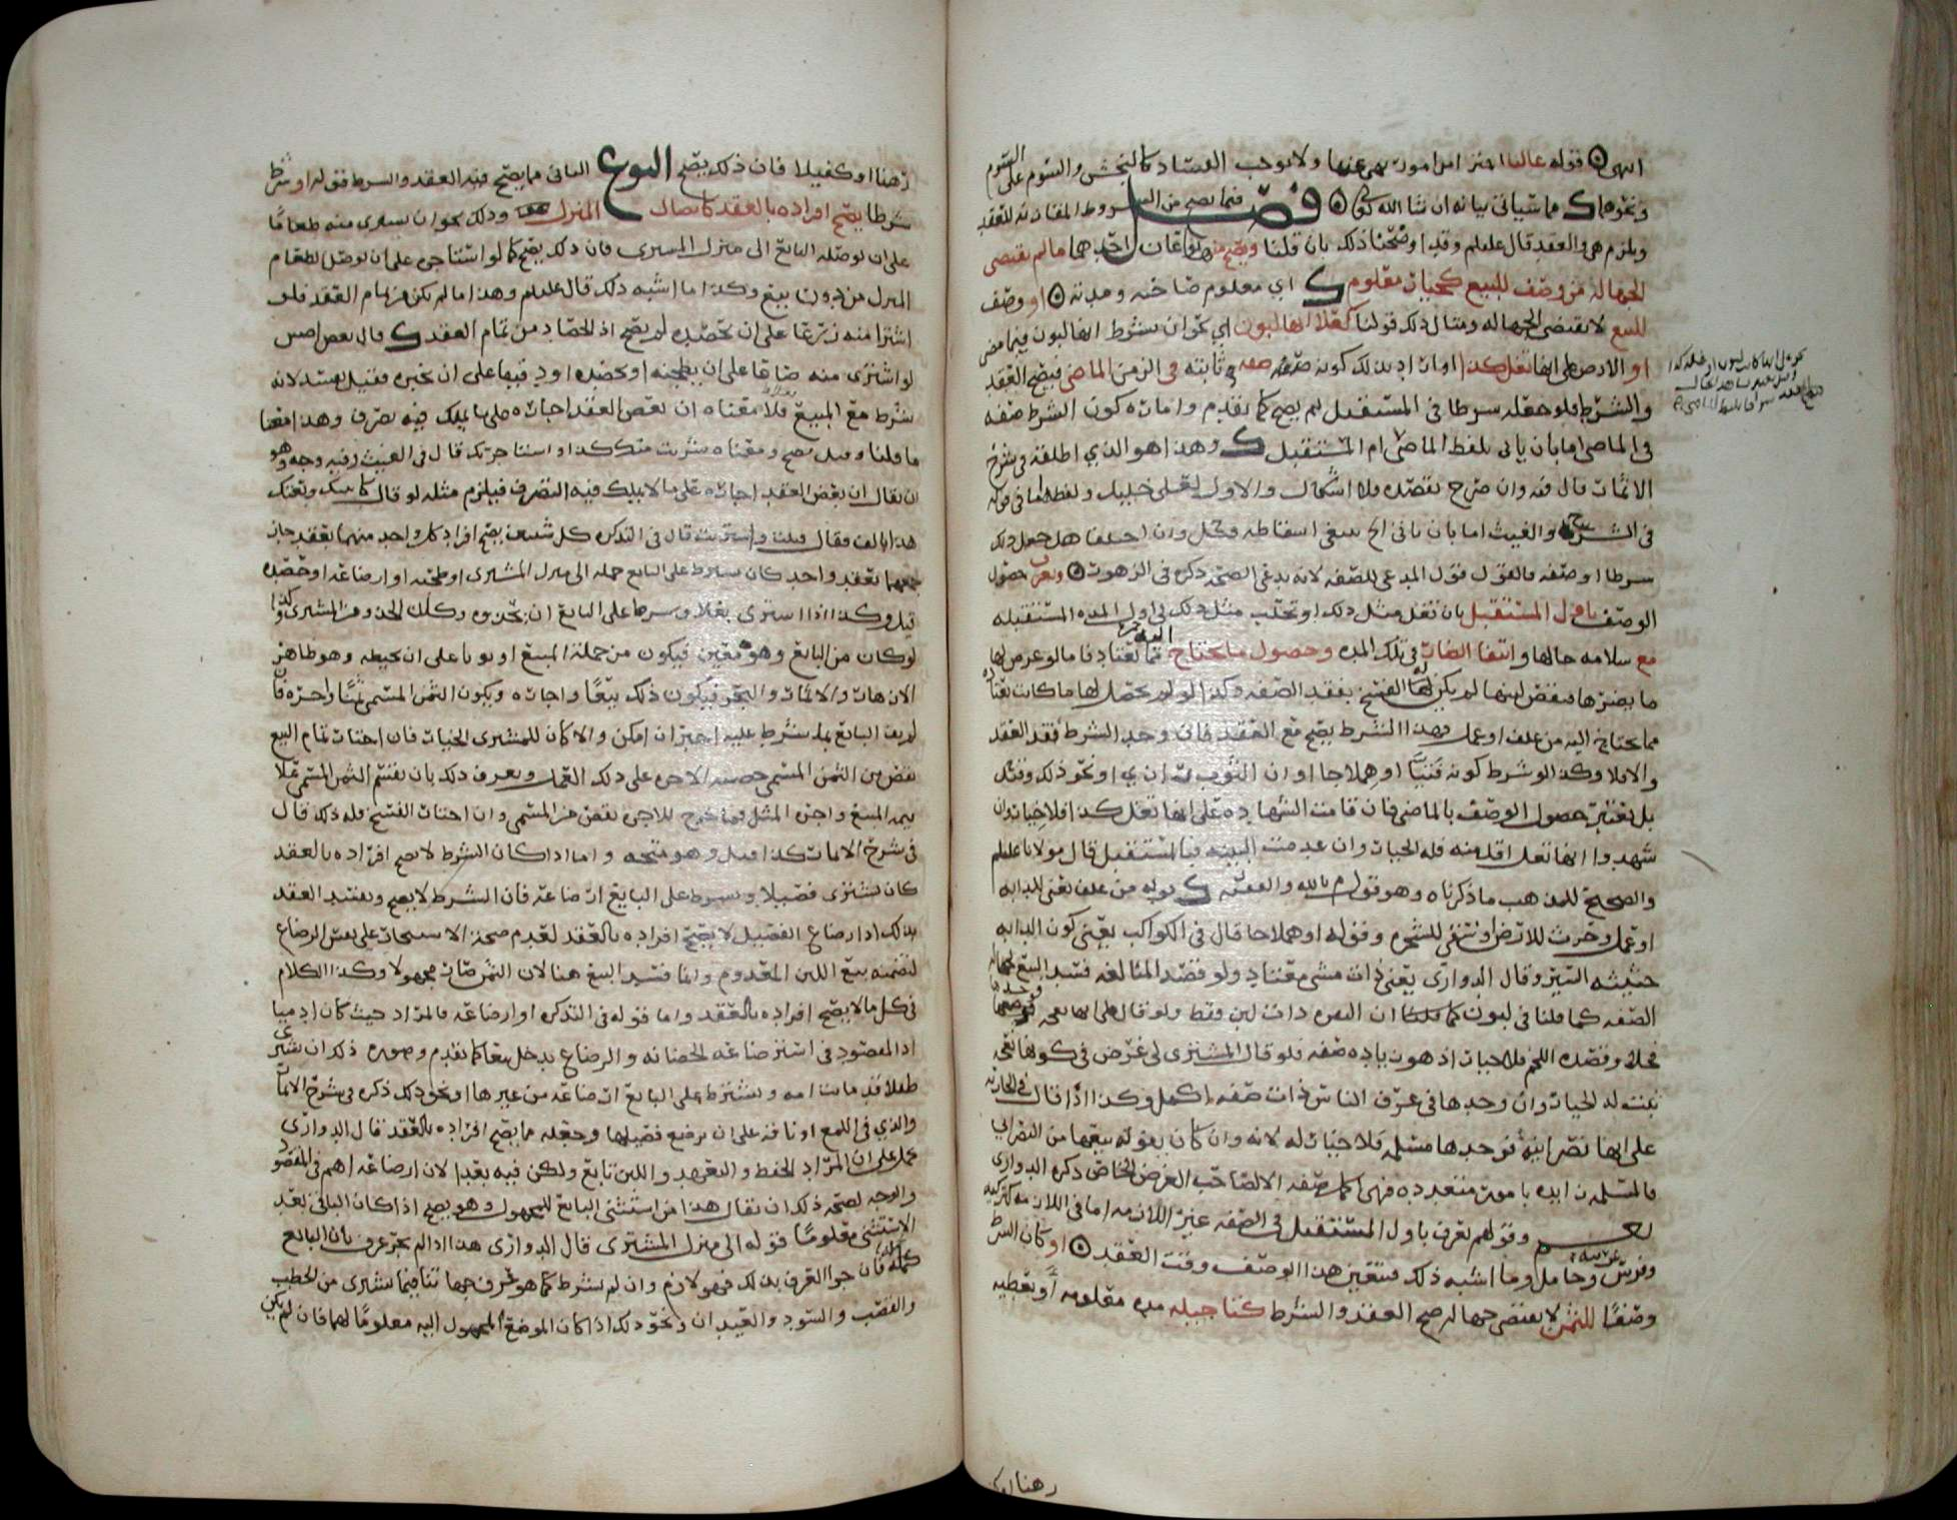 انتهى قوله غالبا احتراز من امور نهي عنها ولا توجب الفساد كالنجش والسوم على السوم
ونحوهما مما سياتي بيانه ان شا الله تعالى فصل فيما يصح من الشروط المقارنة للعقد
ويلزم هي والعقد قال عليلم وقد اوضحنا ذلك بان قلنا ويصح منها نوعان احدهما ما لم يقتضي
الجهالة من وصف للبيع كخيار معلوم اي معلوم صاحبه ومدته او وصف
للمبيع لا يقتضي الجهالة ومثال ذلك قولنا كعلى انها لبون اي نحو ان يشترط انها لبون فيما مضى
او الارض على انها تغل كذا اذا اراد بذلك كونه صفة ثابتة في الزمن الماضي فيصح العقد
والشرط فلو جعله شرطا في المستقبل لم يصح كما تقدم وامارة كون الشرط صفة
في الماضي اما بان ياتي بلفظ الماضي ام المستقبل وهذا هو الذي اطلقه في شرح
الاثمار قال فيه وان صرح بقصده فلا اشكال والاول لعلي خليل ولفظه اما في قوله
في الشرح والغيث اما بان ياتي الخ ينبغي اسقاطه وان اختلفا هل جعل ذلك
شرطا او صفة فالقول قول المدعي للصفة لانه يدعي الصحة ذكره في الزهور ويعرف حصول
الوصف باول المستقبل بان تغل مثل ذلك او تحلب مثل ذلك في اول المدة المستقبلة
مع سلامة حالها وانتفا الضار في تلك المدة وحصول ما يحتاج مما يعتاد فاما لو عرض لها
ما يضرها فنقص لبنها لم يكن له الفسخ بفقد الصفة وكذا لو لم يحصل لها ما كانت تعتاد
مما تحتاج اليه من علف او عمل فهذا الشرط يصح مع العقد فان وجد الشرط نفذ العقد
والا فلا وكذا لو شرط كونه فتيا او هملاجا او ان الثوب ونحو ذلك وقيل
بل يعتبر حصول الوصف بالماضي فان قامت الشهادة على انها تغل كذا فلا خيار وان
شهدوا انها تغل اقل منه فله الخيار وان عدمت البينة فبالمستقبل قال مولانا عليلم
والصحيح للمذهب ما ذكرناه وهو قول م بالله والفقيه قوله من علف يعني للدابة
او عمل وحرث للارض او سقي للشجرة وقوله او هملاجا قال في الكواكب يعني كون الدابة
حثيثة السير وقال الدواري يعني ذات مشي معتاد ولو قصد المبالغة فسد البيع لجهالة
الصفة كما قلنا في لبون ان البقرة ذات لبن فقط ولو قال على انها نعجة فوجدها
فحلا وقصده اللحم فلا خيار اذ هو زيادة صفة فلو قال المشتري لي غرض في كونها نعجة
ثبت له الخيار وان وجدها في عرف الناس ذات صفة اكمل وكذا اذا قال في الجارية
على انها نصرانية فوجدها مسلمة فلا خيار له لانه وان كان يفوته بيعها من النصراني
فالمسلمة زايدة بامور متعددة فهي اكمل صفة الا لصاحب الغرض الخاص ذكره الدواري
نعم وقولهم يعرف باول المستقبل في الصفة غير اللازمة اما في اللازمة كتركية
وفرس عربية وحامل وما اشبه ذلك فتتعين هذا الوصف وقت العقد او كان الشرط
وصفا للثمن لا يقتضي جهالة صح العقد والشرط كتاجيله مدة معلومة او يعطيه
رهنا او ك
رهنا او كفيلا فان ذلك يصح النوع الثاني مما يصح فيه العقد والشرط قوله او شرط
شرطا يصح افراده بالعقد كايصال المنزل وذلك نحو ان يشتري منه طعاما
على ان يوصله البايع الى منزل المشتري فان ذلك يصح كما لو استاجر على ان يوصل الطعام
المنزل من دون بيع وكذا ما اشبه ذلك قال عليلم وهذا ما لم يكن من تمام العقد فلو
اشترا منه زرعا على ان يحصده لم يصح اذ الحصاد من تمام العقد قال بعض اصش
لو اشترى منه صاعا على ان يطحنه او يحصده او دقيقا على ان يخبزه فقيل يفسد لانه
شرط مع المبيع فلا معناه ان بعض العقد اجارة على ما يملك فيه تصرف وهذا معنا
ما قلنا وقيل يصح ومعناه شريت منك كذا واستاجرتك قال في الغيث وفيه وجه وهو
ان يقال ان بعض العقد اجارة على ما لا يملك فيه التصرف فيلزم مثله لو قال كاتبتك وبعتك
هذا بالف فقال قبلت واشتريت قال في التذكرة كل شيئين يصح افراد كل واحد منهما بعقد جاز
جمعهما بعقد واحد كان يشترط على البايع حمله الى منزل المشتري او طحنه او ارضاعه او حصده
قيل وكذا اذا اشترى نعلا وشرط على البايع ان يحذوه وكذلك الجذوة من المشتري وكذا
لو كان من البايع وهو معين فيكون من جملة المبيع او ثوبا على ان يخيطه وهو ظاهر
الازهار والاثمار والبحر فيكون ذلك بيعا واجارة ويكون الثمن المسمى ثمنا واجرة فان
لم يف البايع بما شرط عليه اجبر ان امكن والا كان للمشتري الخيار فان اختار تمام البيع
نقص من الثمن المسمى حصة الاجرة على ذلك العمل ويعرف ذلك بان يقسم الثمن المسمى على
قيمة المبيع واجرة المثل فما خرج للاجرة نقص من المسمى وان اختار الفسخ فله ذلك قال
في شرح الاثمار كذا قيل وهو متجه واما اذا كان الشرط لا يصح افراده بالعقد
كان يشتري فصيلا ويشرط على البايع ارضاعه فان الشرط لا يصح ويفسد العقد
بذلك اذ ارضاع الفصيل لا يصح افراده بالعقد لعدم صحة الاستيجار على نفس الرضاع
لتضمنه بيع اللبن المعدوم وانما فسد البيع هنا لان الثمن صار مجهولا وكذا الكلام
في كل ما لا يصح افراده بالعقد واما قوله في التذكرة او ارضاعه فالمراد حيث كان ادميا
اذ المقصود في استرضاعه الحضانة والرضاع يدخل تبعا كما تقدم وصورة ذلك ان يشتري
طفلا قد ماتت امه ويشترط على البايع ارضاعه من غيرها او نحو ذلك ذكره في شرح الاثمار
والذي في اللمع او ناقة على ان ترضع فصيلها وجعله مما يصح افراده بالعقد قال الدواري
يحمل على ان المراد الحفظ والتعهد واللبن تابع ولكن فيه بعد لان ارضاعه اهم في المقصود
والوجه لصحة ذلك ان يقال هذا من استثنى البايع للمجهول وهو يصح اذا كان الباقي بعد
الاستثنى معلوما قوله الى منزل المشتري قال الدواري هذا اذا لم يجر عرف بان البايع
يحمله فان جرا العرف بذلك فهو لازم وان لم يشرط كما هو عرف جهاتنا فيما يشترى من الحطب
والقصب والسود والعيدان ونحو ذلك اذا كان الموضع المحمول اليه معلوما لهما فان لم يكن